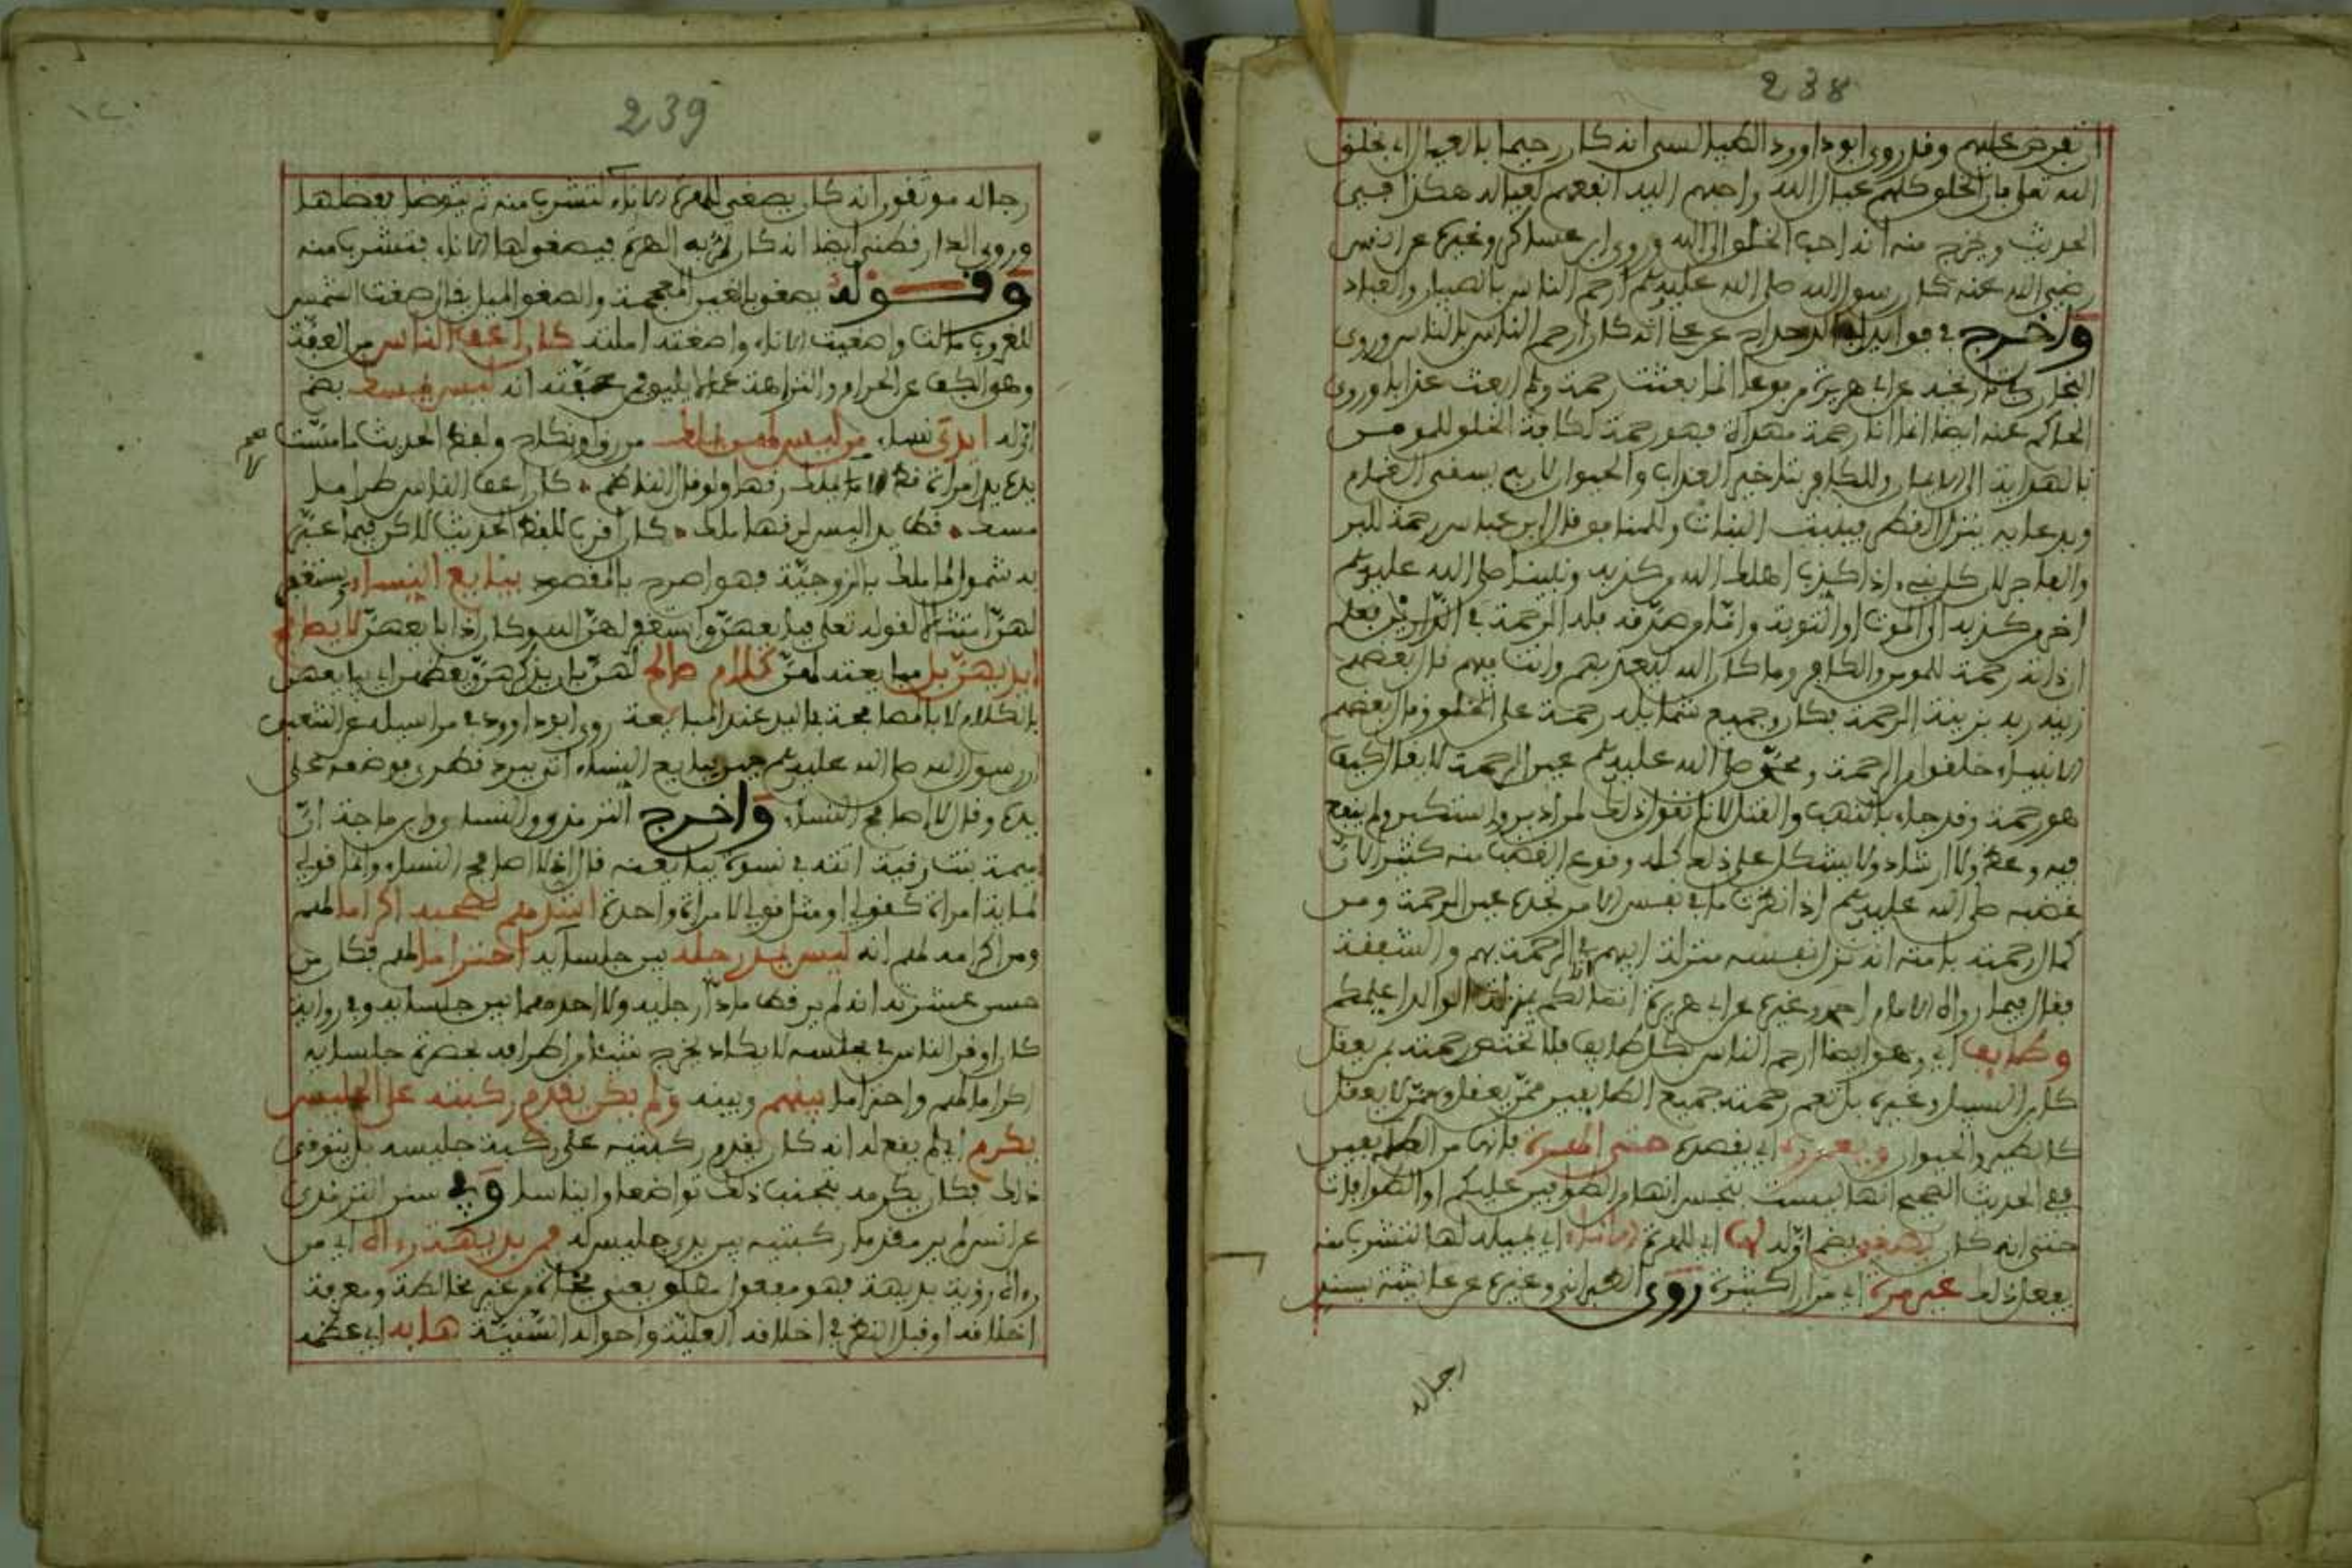 238
ان تفرض عليهم وقد روى ابو داوود الطيالسي انه كان رحيما بالعيال اي بخلق
الله تعلى فان الخلق كلهم عيال الله واحبهم اليه انفعهم لعياله هكذا في
الحديث ويخرج منه انه احب الخلق الى الله وروى ابن عساكر وغيره عن انس
رضي الله عنه كان رسول الله صلى الله عليه وسلم ارحم الناس بالصبيان والعيال
واخرج في فوايد ابو الدحداح عن علي انه كان ارحم الناس بالناس وروى
البخاري عن ابي هريرة مرفوعا انما بعثت رحمة ولم ابعث عذابا وروى
الحاكم عنه ايضا انما انا رحمة مهداة فهو رحمة لكافة الخلق للمومن
بالهداية الى الايمان وللكافر بتاخير العذاب والحيوان لانه يسقى الغمام
ويدعايه ينزل القطر فينبت النبات وللمنافق قال ابن عباس رحمة للبر
والفاجر لان كل نبي اذا كذب اهلك الله من كذبه ونبينا صلى الله عليه وسلم
اخر من كذبه الى الموت او التوبة واما من صدقه فله الرحمة في الدارين فعلم
ان ذاته رحمة للمومن والكافر وما كان الله ليعذبهم وانت فيهم قال بعضهم
زينه ربه بزينة الرحمة فكان وجميع شمايله رحمة على الخلق وقال بعضهم
الانبياء خلقوا من الرحمة ومحمد صلى الله عليه وسلم عين الرحمة لا يقال كيف
هو رحمة وقد جاء بالنهب والقتل لانا نقول ذلك لمن ادبر واستكبر ولم ينفع
فيه وعظ ولا ارشاد ولا يشكل على ذلك كله وقوع الغضب منه كثيرا لان
غضبه صلى الله عليه وسلم اذا نظرت ما في نفس الامر تجده عين الرحمة ومن
كمال رحمته بامته انه نزل نفسه منزلة ابيهم في الرحمة بهم والشفقة
فقال فيما رواه الامام احمد وغيره عن ابي هريرة انما انا لكم بمنزلة الوالد اعلمكم
وطايف اي وهو ايضا ارحم الناس بكل طايف فلا تختص رحمته بمن يعقل
كابن السبيل وغيره بل تعم رحمته جميع الطايفين ممن يعقل وممن لا يعقل
كالطير والحيوان ويعم بره اي يقصده حتى الهرة فانها من الطايفين
ففي الحديث الصحيح انها ليست بنجس انها من الطوافين عليكم او الطوافات
حتى انه كان يصغي بضم اوله لها اي للهرة الاناء اي يميله لها لتشرب منه
يفعل ذلك غير مرة اي مرارا كثيرة روى الطبراني وغيره عن عايشة بسند
رجاله
239
رجاله موثقون انه كان يصغي للهرة الاناء لتشرب منه ثم يتوضا بفضلها
وروى الدارقطني ايضا انه كان تمر به الهرة فيصغو لها الاناء فتشرب منه
وقوله يصغو بالغين المعجمة والصغو الميل يقال صغت الشمس
للغروب مالت واصغيت الاناء واصغته املته كان اعف الناس من العفة
وهو الكف عن الحرام والنزاهة عما لا يليق فمن عفته انه ليس يمسك بضم
اوله ايدي نساء من ليس لهن يملك من رق او نكاح ولفظ الحديث ما مست
يده يد امراة قط لا يملك رقها ولو قال الناظم • كان اعف الناس طرا ما
مسك • قط يدا ليس لرقها ملك • كان اقرب للفظ الحديث لاكن فيما عبر
به شمول لما ملك بالزوجية فهو اصرح بالمقصود يبايع النساء ويستغفر
لهن امتثالا لقوله تعلى فبايعهن واستغفر لهن الله وكان اذا بايعهن لا يصافح
ايديهن بل مبايعته لهن كلام صالح لهن بان يذكرهن ويعظهن اي يبايعهن
بالكلام لا بالمصافحة باليد عند المبايعة روى ابو داوود في مراسيله عن الشعبي
ان رسول الله صلى الله عليه وسلم حين بايع النساء اتي ببرد قطري فوضعه على
يده وقال لا اصافح النساء واخرج الترمذي والنساءي وابن ماجة ان
اميمة بنت رقيقة اتته في نسوة يبايعنه فقال اني لا اصافح النساء وانما قولي
لماية امراة كقولي او مثل قولي لامراة واحدة اشدهم لصحبه اكراما لهم
ومن اكرامه لهم انه ليس يمد رجله بين جلسايه احتراما لهم فكان من
حسن عشرته انه لم ير قط مادا رجليه ولا احدهما بين جلسايه وفي رواية
كان اوقر الناس في مجلسه لا يكاد يخرج شيئا من اطرافه بحضرة جلسايه
اكراما لهم واحتراما بينهم وبينه ولم يكن يقدم ركبته على الجليس
يكرم اي لم يفعل انه كان يقدم ركبتيه على ركبة جليسه بل يتوقى
ذلك فكان يكرمه بتجنب ذلك تواضعا وايناسا وفي سنن الترمذي
عن انس لم ير مقدما ركبتيه بين يدي جليس له فمن بديهة رءاه اي من
رءاه رؤية بديهة فهو مفعول مطلق يعني فجاة من غير مخالطة ومعرفة
اخلاقه او قبل النظر في اخلاقه العلية واحواله السنية هابه اي عظمه